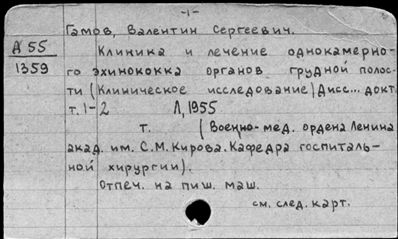 -1-
Гамов, Валентин Сергеевич.
А 55
1359
Клиника и лечение однокамерно-
го эхинококка органов грудной полос-
ти (Клиническое исследование) Дисс... докт.
т. 1-2 Л, 1955
т. (Военно-мед. ордена Ленина
акад. им. С.М. Кирова. Кафедра госпиталь-
ной хирургии).
Отпеч. на пиш. маш.
см. след. карт.